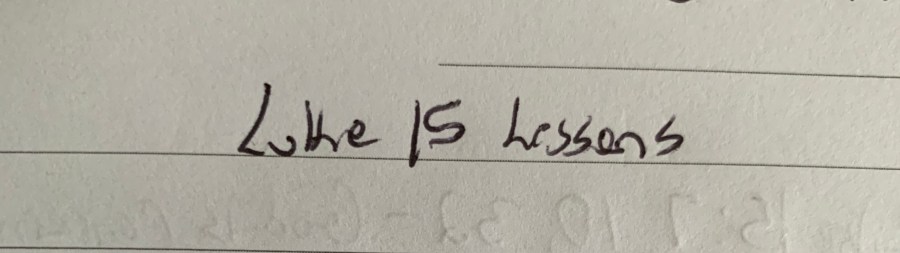 Luke 15 Lessons